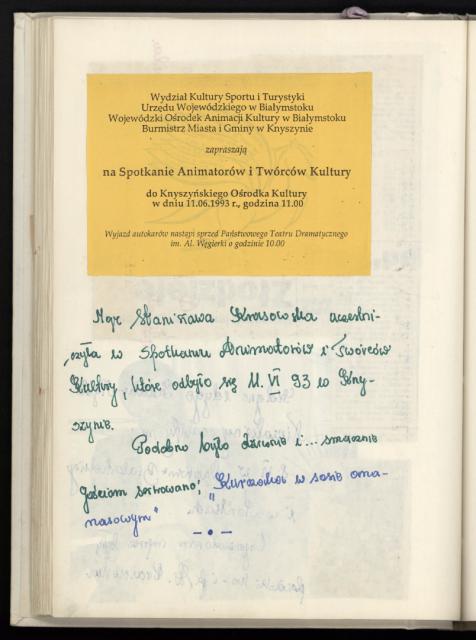 Wydział Kultury Sportu i Turystyki
Urzędu Wojewódzkiego w Białymstoku
Wojewódzki Ośrodek Animacji Kultury w Białymstoku
Burmistrz Miasta i Gminy w Knyszynie
zapraszają
na Spotkanie Animatorów i Twórców Kultury
do Knyszyńskiego Ośrodka Kultury
w dniu 11.06.1993 r., godzina 11.00
Wyjazd autokarów nastąpi sprzed Państwowego Teatru Dramatycznego
im. Al. Węgierki o godzinie 10.00
Mgr Stanisława Krasowska uczestni-
czyła w Spotkaniu Animatorów i Twórców
Kultury, które odbyło się 11. VI 93 w Kny-
szynie.
Podobno było dziwnie i... smacznie
gościom serwowano; "Kurczaka w sosie ana-
nasowym"